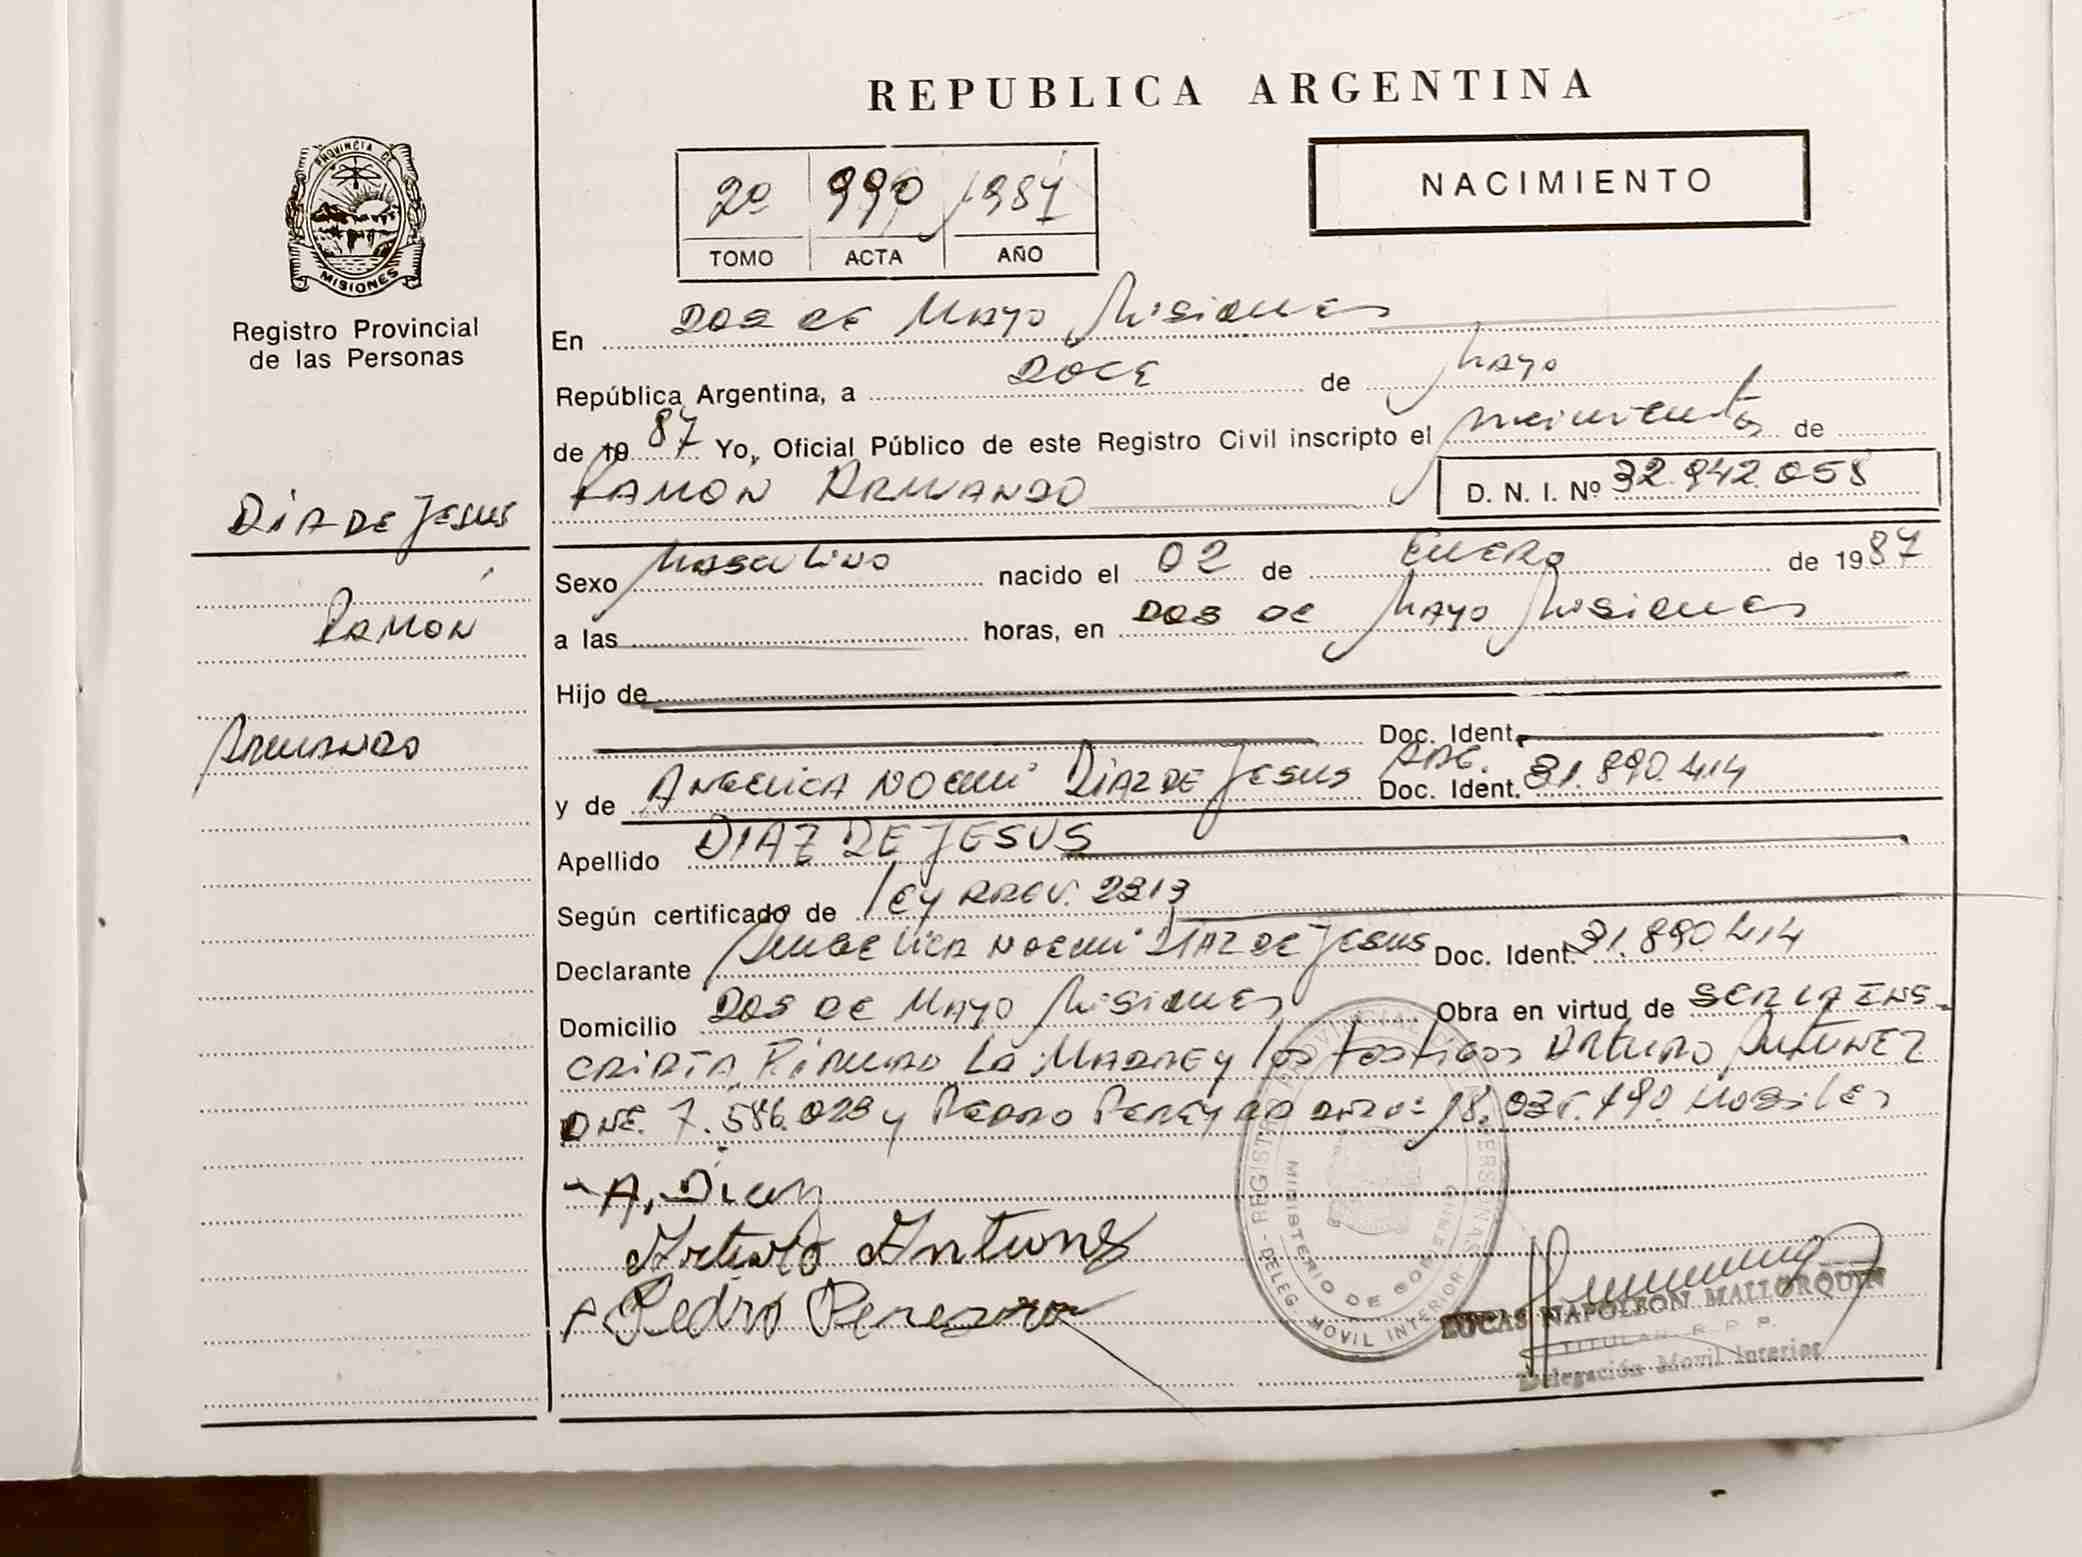 REPUBLICA ARGENTINA
PROVINCIA DE
MISIONES
Registro Provincial
de las Personas
2º 990 1987
TOMO ACTA AÑO
NACIMIENTO
En Dos de Mayo Misiones
República Argentina, a Doce de Mayo
de 1987 Yo, Oficial Público de este Registro Civil inscripto el nacimiento de
Ramon Armando D. N. I. Nº 32.942.058
Diaz de Jesus
Ramon
Armando
Sexo Masculino nacido el 02 de Enero de 1987
a las horas, en Dos de Mayo Misiones
Hijo de
Doc. Ident.
y de Angelica Noemi Diaz de Jesus Arg. Doc. Ident. 31.890.414
Apellido DIAZ DE JESUS
Según certificado de Ley Prev. 2313
Declarante Angelica Noemi Diaz de Jesus Doc. Ident. 31.890.414
Domicilio Dos de Mayo Misiones Obra en virtud de ser la ins
cripta Firman La Madre y los testigos Arturo Antunez
DNE. 7.586.023 y Pedro Pereyra 18.035.490 Mosiles
A. Diaz
Arturo Antunes
Pedro Pereyra
REGISTRO PROVINCIAL PERSONAS
MINISTERIO DE GOBIERNO
- DELEG. MOVIL INTERIOR -
LUCAS NAPOLEON MALLORQUIN
TITULAR R. P. P.
Delegación Movil Interior